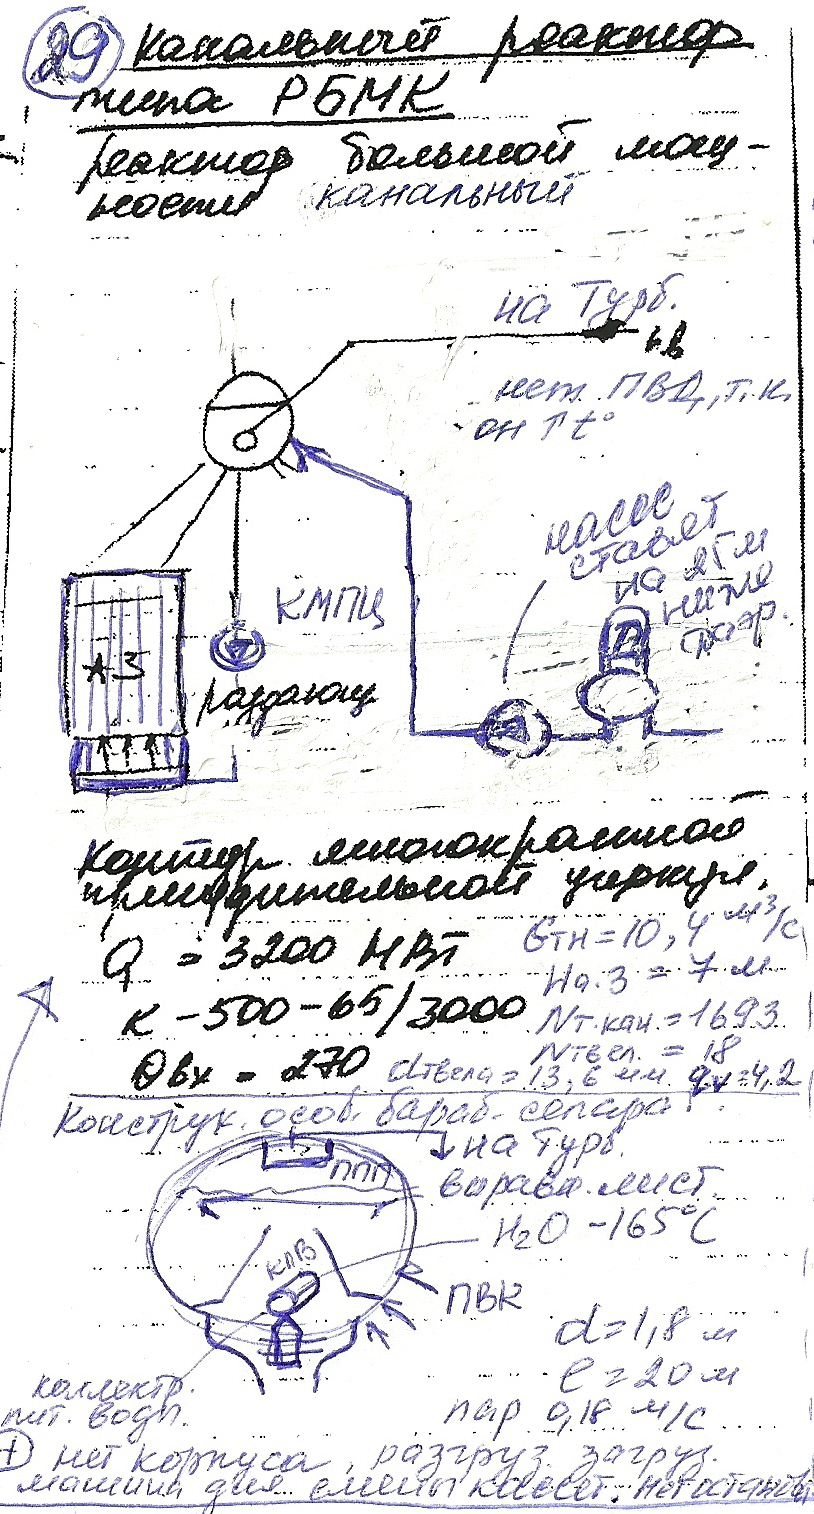 29 Канальный реактор
типа РБМК
реактор большой мощ-
ности канальный
на Турб.
нет ПВД, т.к.
он ↑ t°
насос
ставят
на 25 м
ниже
КМПЦ
АЗ
раздающ
Д
Контур многократной
принудительной циркул.
Q = 3200 МВт
Gтн = 10,4 м³/с
На.з = 7 м
К-500-65/3000
Nт.кан. = 1693
Nтвел. = 18
θвх = 270
dтвела = 13,6 мм qv = 4,2
Конструк. особ. бараб. сепара
на Турб.
ППП
лист
H₂O - 165°C
КПВ
ПВК
d = 1,8 м
l = 20 м
коллектр.
пит. воды.
пар 0,18 м/с
+ нет корпуса, разгруз. загруз.
машины для смены кассет. нет останов